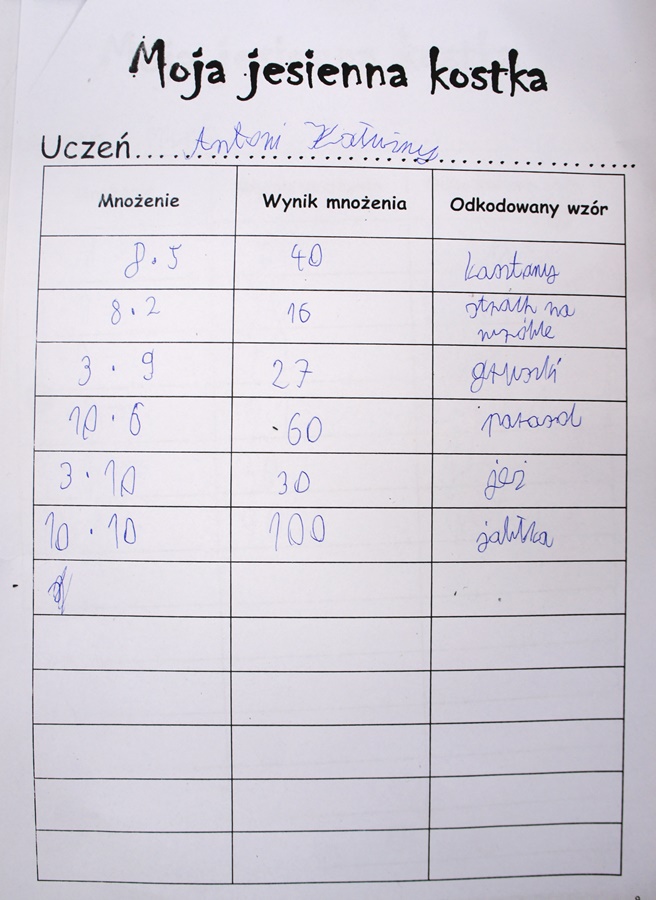 Moja jesienna kostka
Uczeń Antoni Kałużny
Mnożenie Wynik mnożenia Odkodowany wzór
8 · 5 40 kasztany
8 · 2 16 strach na
wróble
3 · 9 27 gruszki
10 · 6 60 parasol
3 · 10 30 jeż
10 · 10 100 jabłka